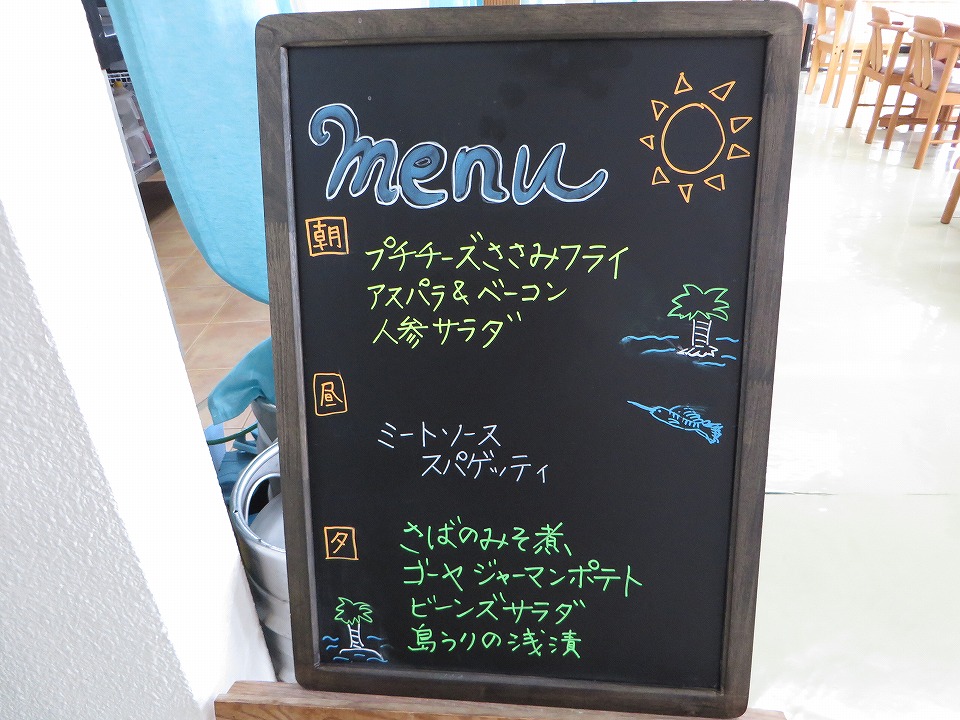 menu
朝
プチチーズささみフライ
アスパラ&ベーコン
人参サラダ
昼
ミートソース
スパゲッティ
夕
さばのみそ煮、
ゴーヤジャーマンポテト
ビーンズサラダ
島うりの浅漬